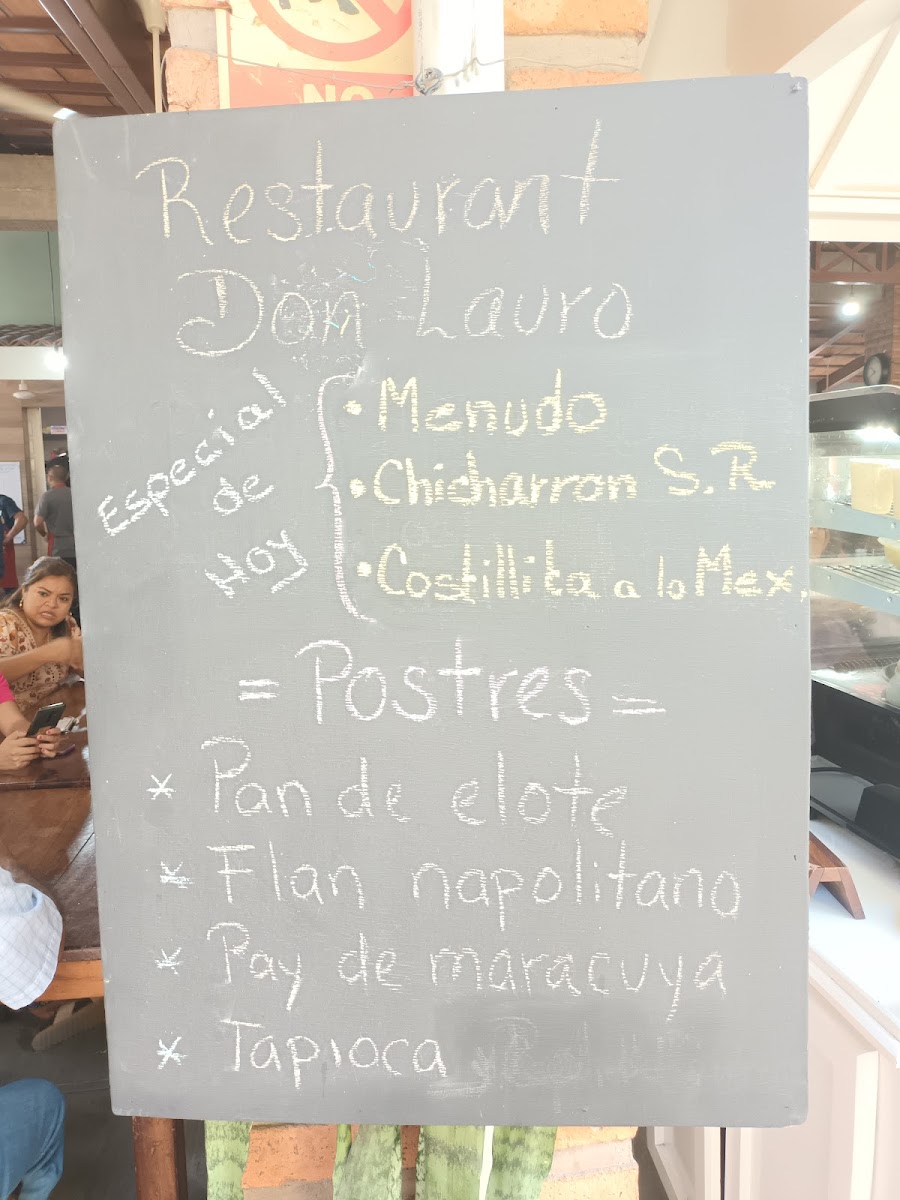 NO
Restaurant
Don Lauro
Especial de Hoy
• Menudo
• Chicharron S.R
• Costillita a lo Mex.
= Postres =
* Pan de elote
* Flan napolitano
* Pay de maracuya
* Tapioca